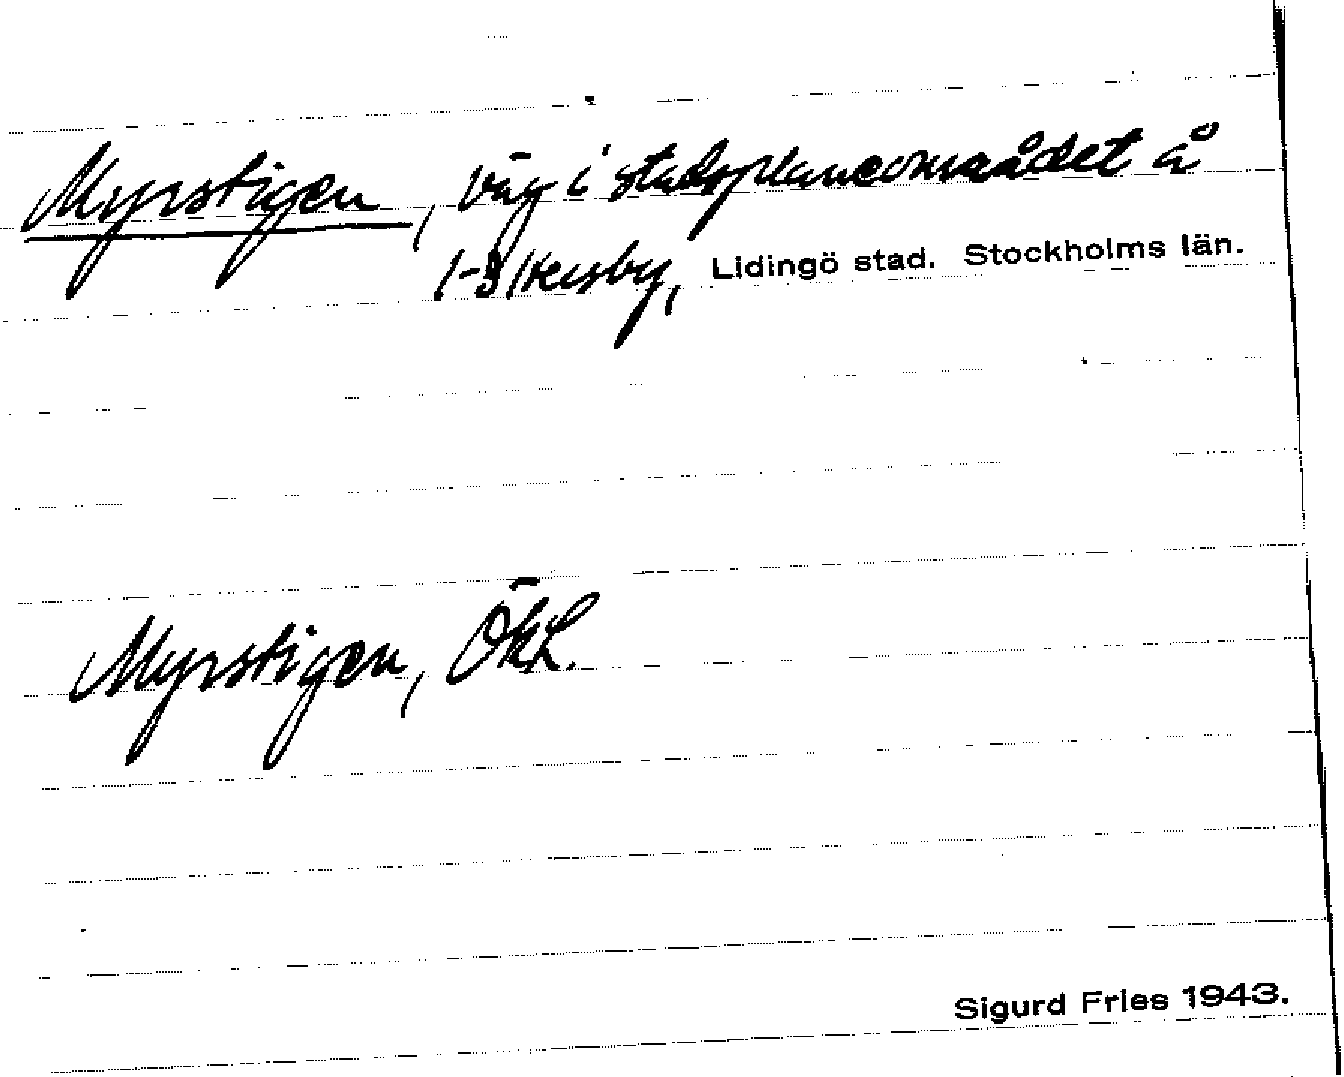 Myrstigen, väg i stadsplaneområdet å
Hersby, Lidingö stad. Stockholms län.
Myrstigen, ÖKL.
Sigurd Fries 1943.